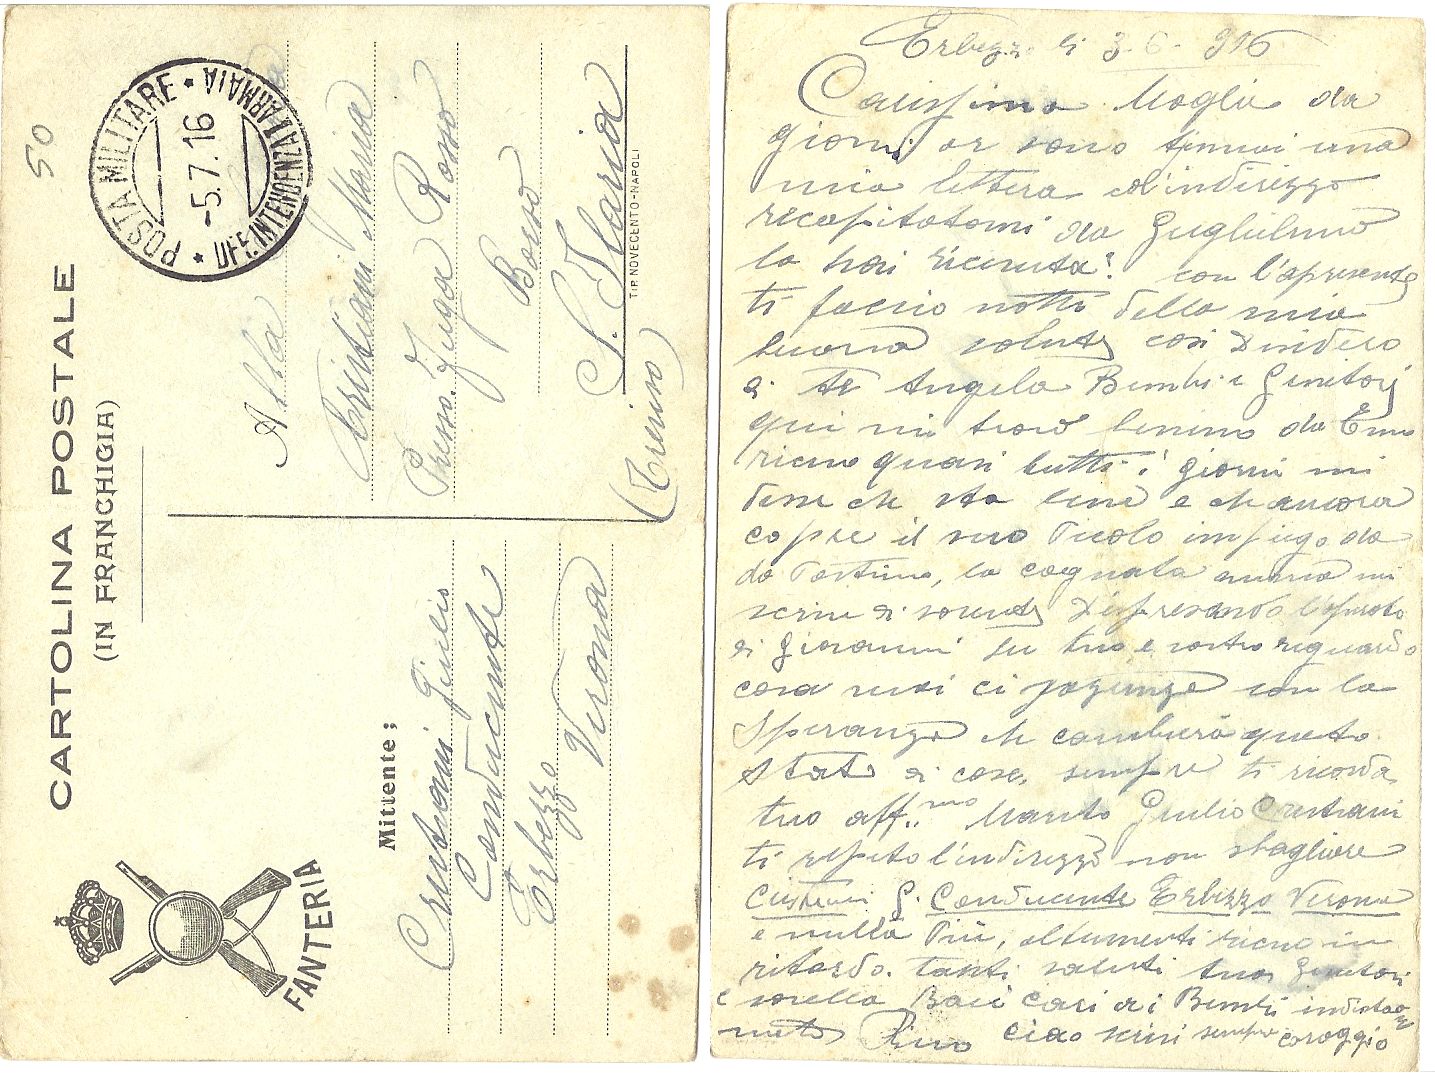 CARTOLINA POSTALE
(IN FRANCHIGIA)
50
POSTA MILITARE * UFF. INTENDENZA I ARMATA *
-5.7.16
Alla
Cristiani Maria
Presso. Fuga Rosso
Borso
S. Ilaria
(Treviso)
TIP. NOVECENTO-NAPOLI
Mittente;
Cristiani Giulio
Conducente
Erbezzo
Verona
FANTERIA
Erbezzo li 3-6-916
Carissima Moglie da
giorni or sono una
mia lettera coll'indirizzo
ricapitatomi da Guglielmo
la hai ricevuta? con l'apresente
ti faccio notto della mia
buona salute così
di te Angela Bimbi e Genitori
qui mi trovo benino da
ricevo quasi tutti i giorni mi
disse che sta bene e che ancora
copre il suo Picolo impiego da
da Postino, la cognata mi
scrive di sovente
di Giovanni su tuo e vostro riguardo
cosa vuoi ci pazienza con la
Speranza che cambierà questo
stato di cose, sempre ti ricorda
tuo aff.mo Marito Giulio Cristiani
ti ripeto l'indirizzo non sbagliare
Cristiani G. Conducente Erbezzo Verona
e nulla Più, altrimenti ricevo in
ritardo. tanti saluti tuoi Genitori
e sorella Baci cari ai Bimbi
ciao scrivi sempre coraggio